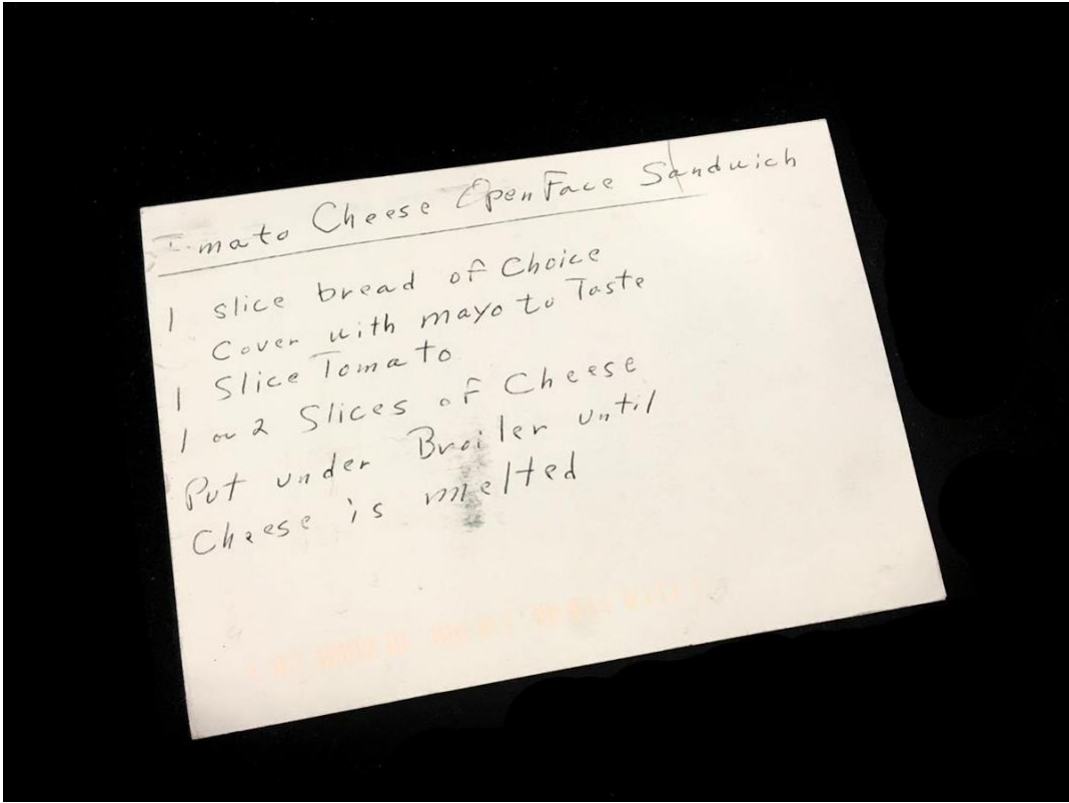 Tomato Cheese Open Face Sandwich
1 slice bread of Choice
Cover with mayo to Taste
1 Slice Tomato
1 or 2 Slices of Cheese
Put under Broiler until
Cheese is melted